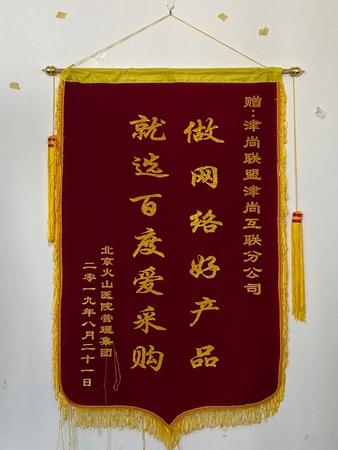 赠：津尚联盟津尚互联分公司
做网络好产品
就选百度爱采购
北京火山医院管理集团
二零一九年八月二十一日